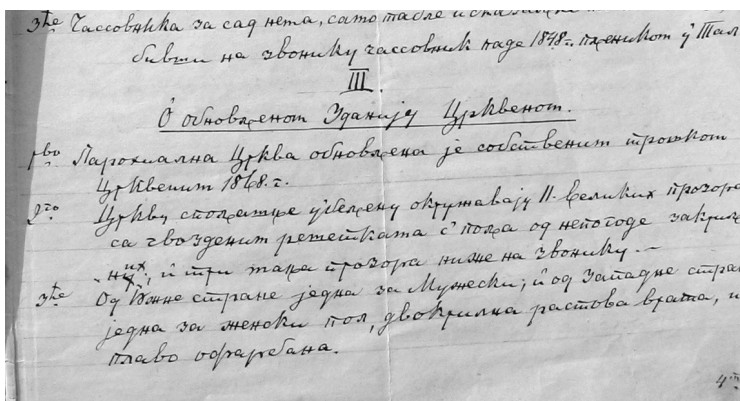 3ће Часовника за сад нета, само табле и сказальке
бивши на звонику часовник паде 1848.г. пленикот у
III.
О обновљенот Зданију Црквенот.
рво Парохиална Црква обновлѣна је собственит трошкот
Црквенит 1868.г.
2то Цркву спољатце убељену окружавају 11. великих прозора
са гвозденит решеткама с' поља од непогоде
них, и три така прозора ниже на звонику.—
3ће Од јужне стране једна за Мужески, и од Западне
једна за женски пол, двокрилна растова врата, и
плаво офарбана.
4т